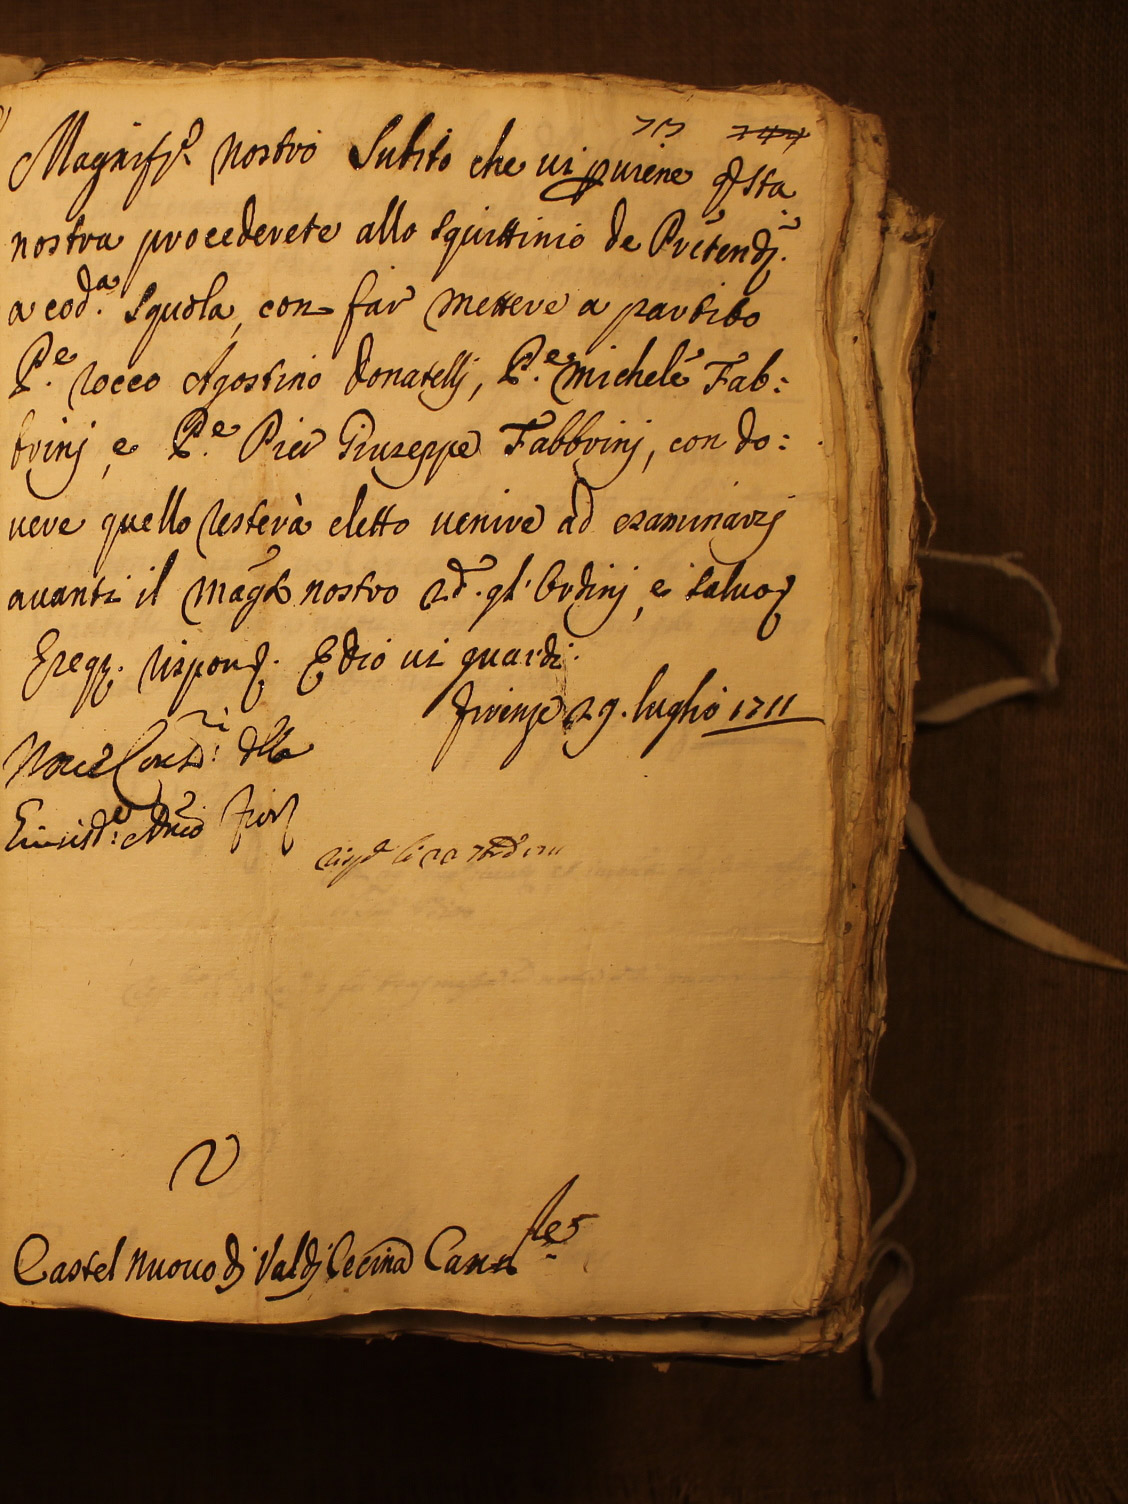 Magnif.co nostro Subito che vi perviene q.sta
nostra procederete allo squittinio de Pretend.i
a cod.a squola, con far mettere a partito
P.e Rocco Agostino Donatelli, P.e Michele Fab:
brinj, e P.e Pier Giuseppe Fabbrinj, con do:
vere quello resterà eletto venire ad esaminarsj
avanti il Mag.to nostro gl'Ordinj, e salvo
Eseq. rispond. E Dio vi guardi.
Firenze 29. luglio 1711
Nove Cons.ri della
Fior
Castel nuovo dj Val dj Cecina Canc.re